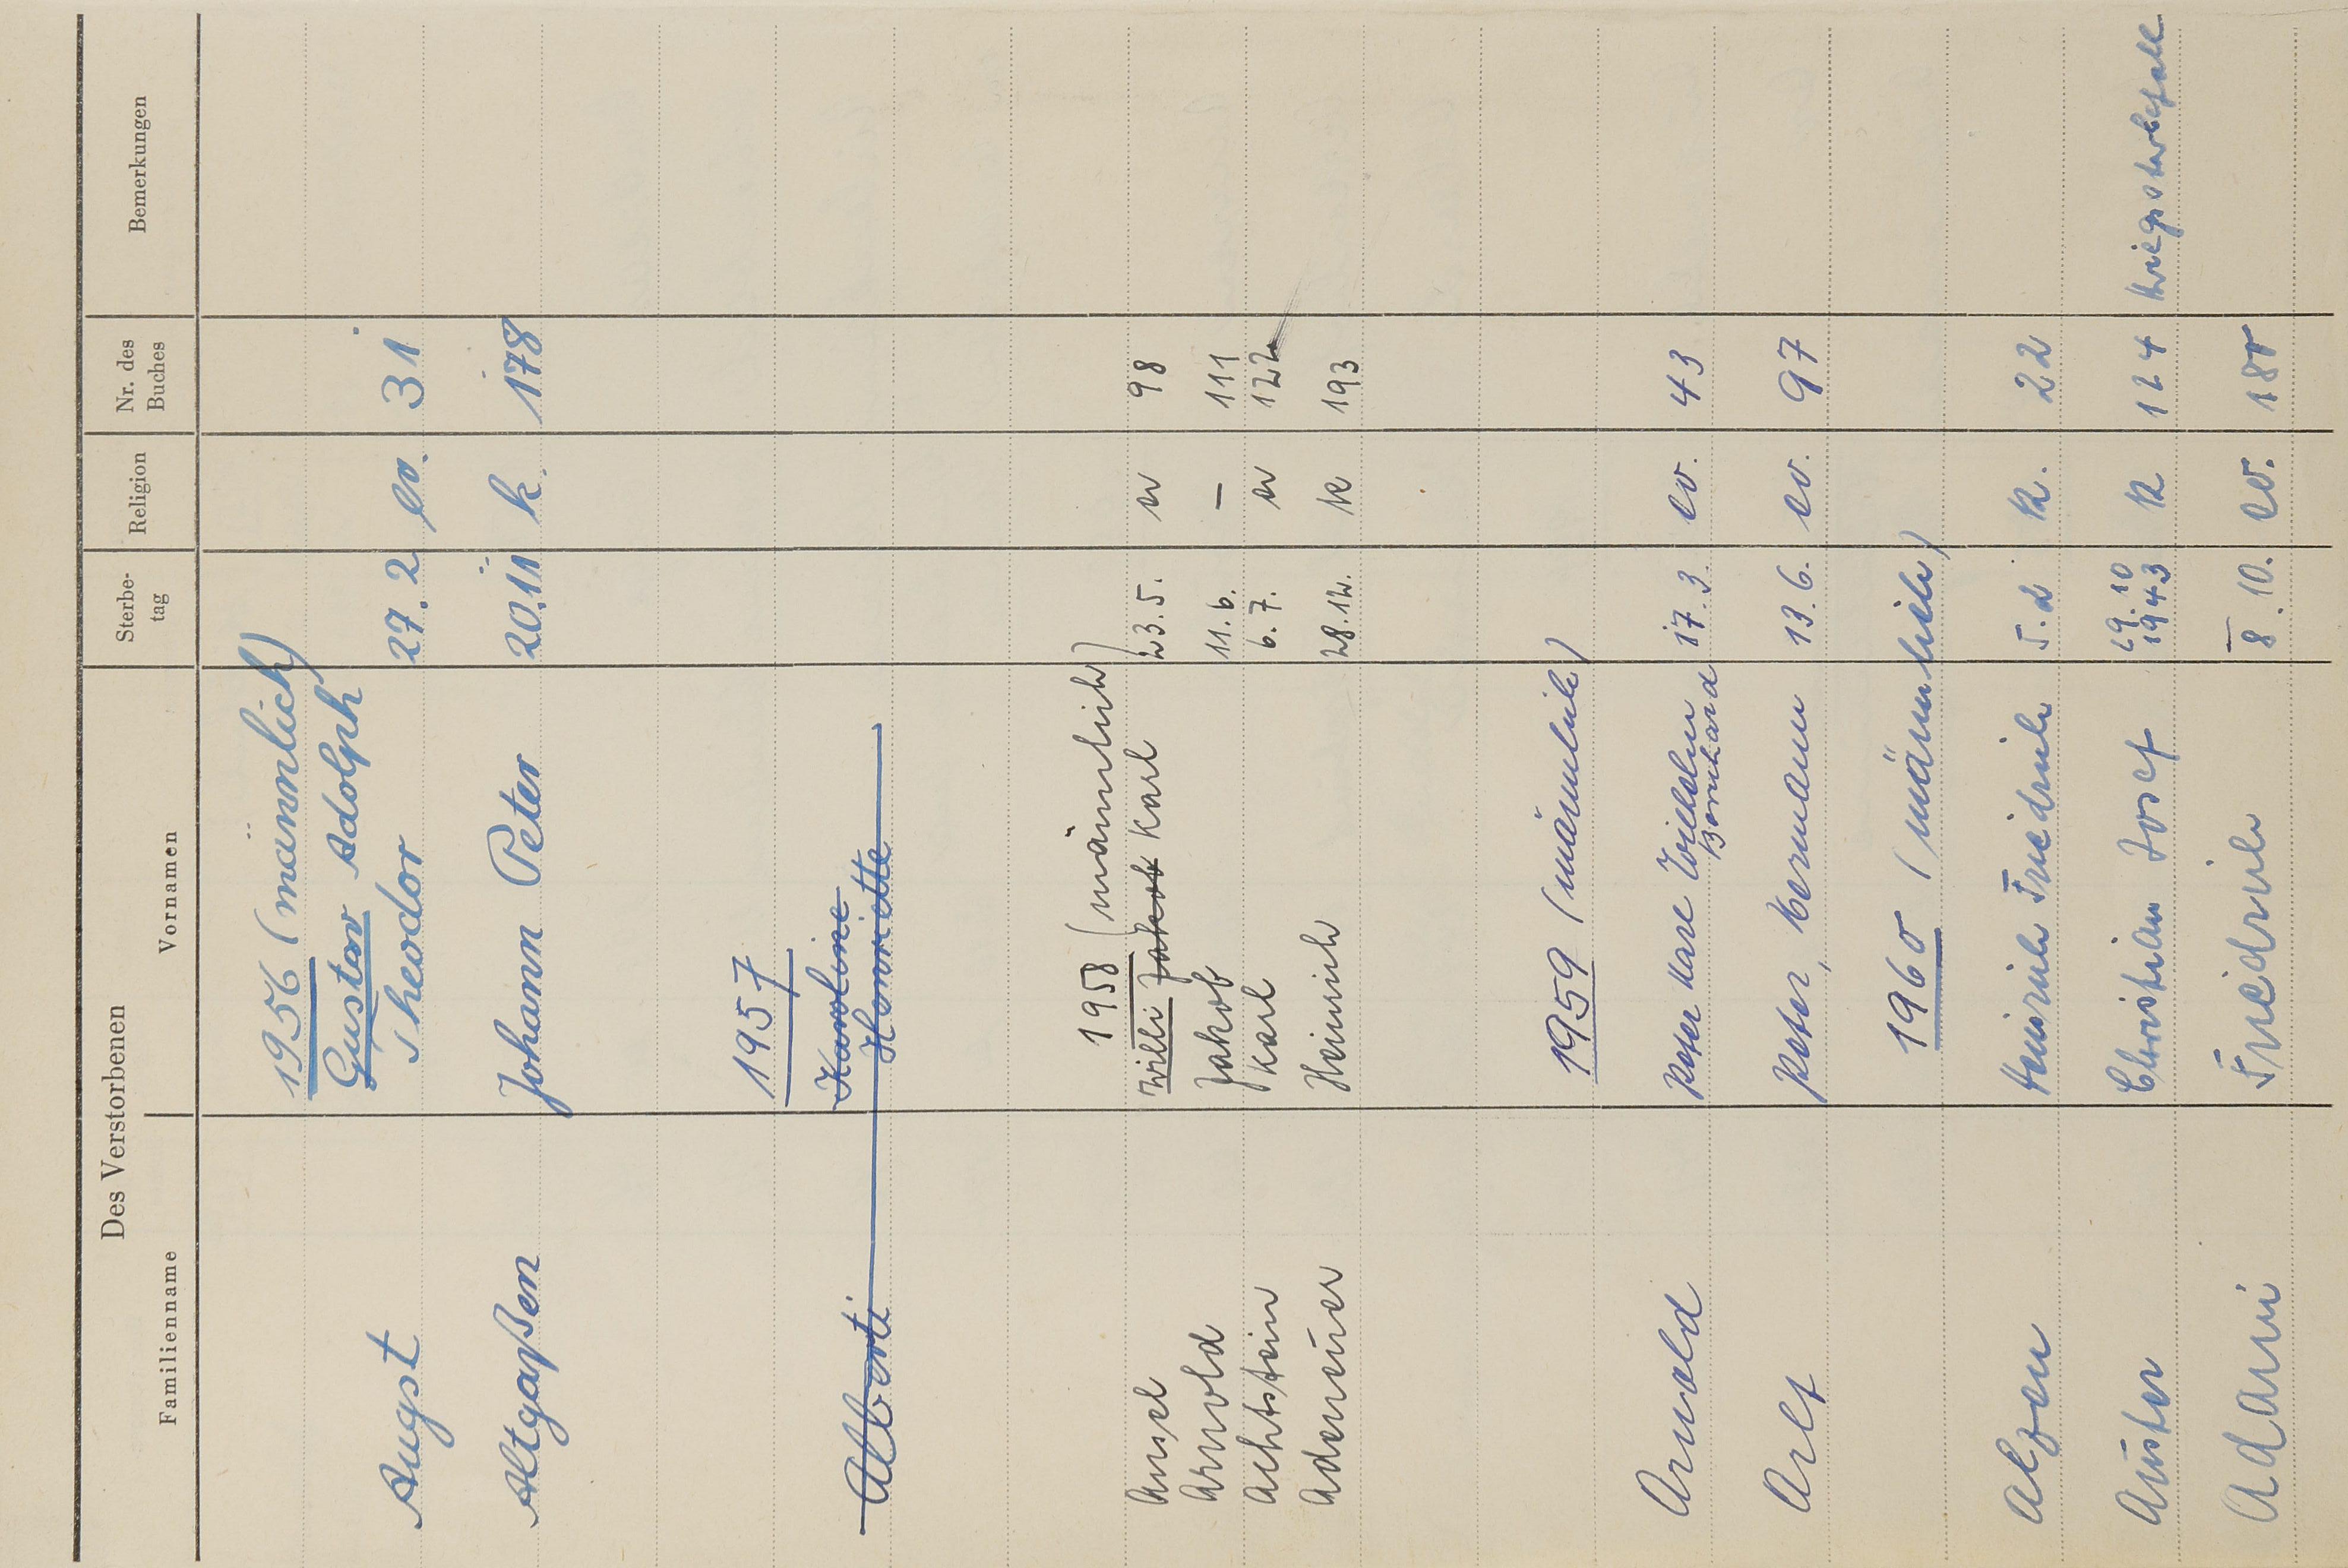 Des Verstorbenen
Familienname Vornamen Sterbe-tag Religion Nr. des Buches Bemerkungen
1956 (männlich)
Gustav Adolph
August Theodor 27.2 ev. 31
Altgaßen Johann Peter 20.11 k. 178
1957
Karoline
Alberti Henriette
1958 (männlich)
Ansel Willi Jakob Karl 23.5. ev 98
Arnold Jakob 11.6. – 111
Achtstein Karl 6.7. ev 122
Adeneuer Heinrich 28.12. k 193
1959 (männlich)
Arnold Peter Karl Wilhelm 17.3. ev. 43
Bernhard
Arlt Peter, Hermann 13.6. ev. 97
1960 (männlich)
Alzen Heinrich Friedrich 5.2 k. 22
Auster Christian Josef 29.10 1943 k 124 Kriegssterbefall
Adami Friedrich 8.10. ev. 180